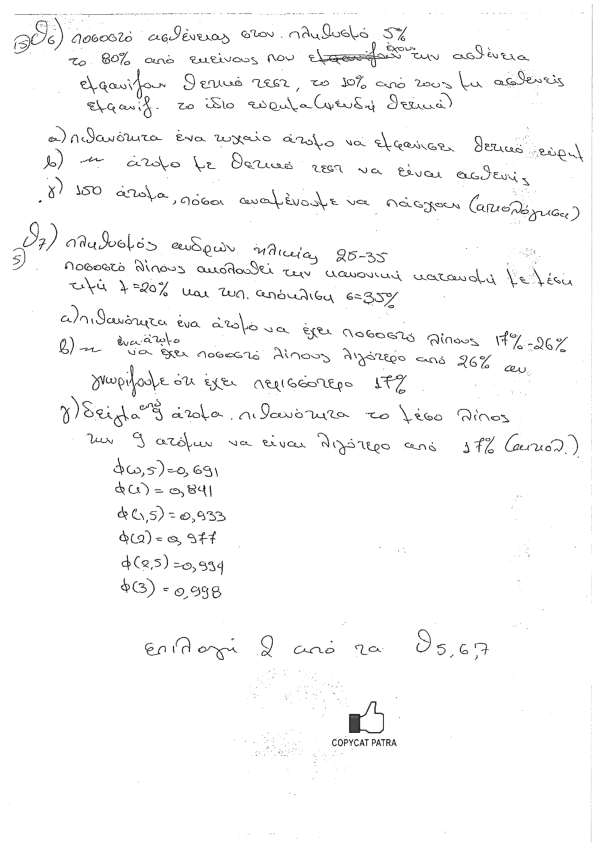 15 Θ6) ποσοστό ασθένειας στον πληθυσμό 5%
το 80% από εκείνους που έχουν την ασθένεια
εμφανίζαν θετικό τεστ, το 10% από τους μη ασθενείς
εμφανίζ. το ίδιο εύρημα (ψευδή θετικά)
α) πιθανότητα ένα τυχαίο άτομο να εμφανίσει θετικό εύρημ
β) -〃- άτομο με θετικό τεστ να είναι ασθενής
γ) 150 άτομα, πόσοι αναμένουμε να πάσχουν (αιτιολόγηση)
5 Θ7) πληθυσμός ανδρών ηλικίας 25-35
ποσοστό λίπους ακολουθεί την κανονική κατανομή με μέση
τιμή μ=20% και τυπ. απόκλιση σ=
α) πιθανότητα ένα άτομο να έχει ποσοστό λίπους 17%-26%
β) -〃- ένα άτομο να έχει ποσοστό λίπους λιγότερο από 26% αν
γνωρίζουμε ότι έχει περισσότερο 17%
γ) δείγμα από 9 άτομα. πιθανότητα το μέσο λίπος
των 9 ατόμων να είναι λιγότερο από 17% (αιτιολ.)
φ(0,5)=0,691
φ(1)=0,841
φ(1,5)=0,933
φ(2)=0,977
φ(2,5)=0,994
φ(3)=0,998
επιλογή 2 από τα Θ5,6,7
COPYCAT PATRA